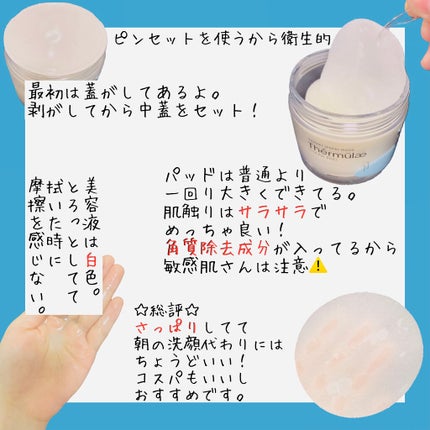 ピンセットを使うから衛生的
最初は蓋がしてあるよ。
剥がしてから中蓋をセット！
Thermulae
パッドは普通より
一回り大きくできてる。
肌触りはサラサラで
めっちゃ良い！
角質除去成分が入ってるから
敏感肌さんは注意⚠️
美容液は白色。
とろっとしてて
拭いた時に
摩擦を感じない。
☆総評☆
さっぱりしてて
朝の洗顔代わりには
ちょうどいい！
コスパもいいし
おすすめです。